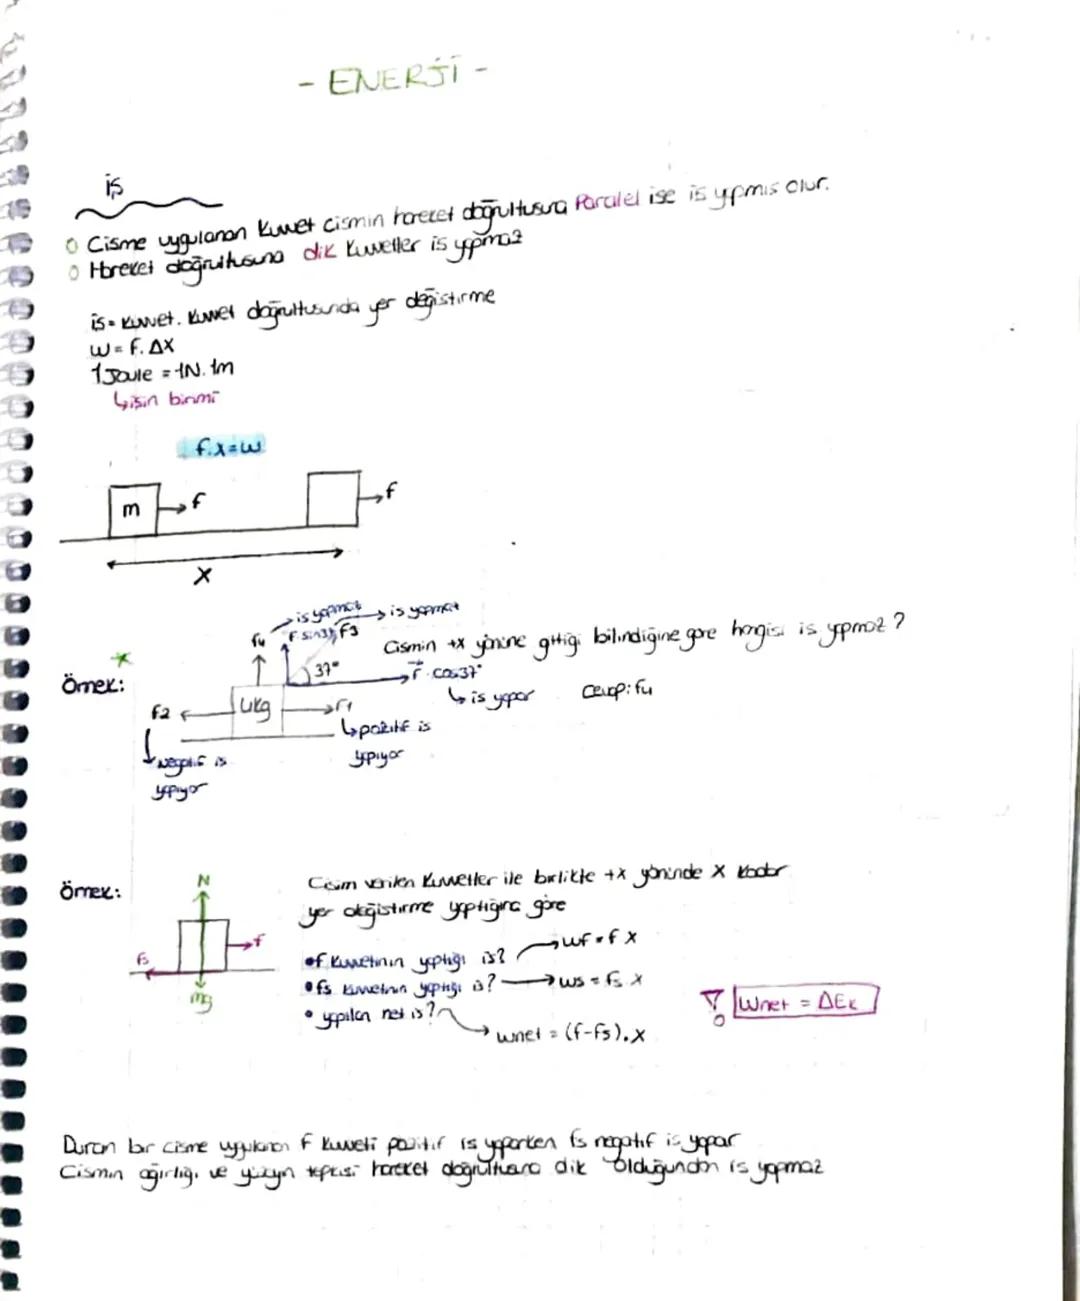 - ENERJİ -
iş
Cisme uygulanan kuvvet cismin hareket doğrultusuna Paralel ise iş yapmış olur.
Hareket doğrultusuna dik kuvvetler iş yapmaz
iş = kuvvet. kuvvet doğrultusunda yer değiştirme
W = F. ΔX
1 Joule = 1N. 1m
↳ işin birimi
f.x=w
m → f
→ f
X
→ iş yapmaz → iş yapmaz
f4 F sin37 F3
Cismin +x yönüne gittiği bilindiğine göre hangisi iş yapmaz?
37° F. cos37°
↳ iş yapar Cevap: f4
Örnek:
f2 4kg → F1
↳ pozitif iş yapıyor
negatif iş yapıyor
Örnek:
N
fs f
mg
Cisim verilen kuvvetler ile birlikte +x yönünde x kadar
yer değiştirme yaptığına göre
• f kuvvetinin yaptığı iş? → wf = f x
• fs kuvvetinin yaptığı iş? → ws = fs x
• yapılan net iş? → wnet = (f-fs).x
Wnet = ΔEk
Duran bir cisme uygulanan F kuvveti pozitif iş yaparken fs negatif iş yapar
Cismin ağırlığı ve yüzeyin tepkisi hareket doğrultusuna dik olduğundan iş yapmaz